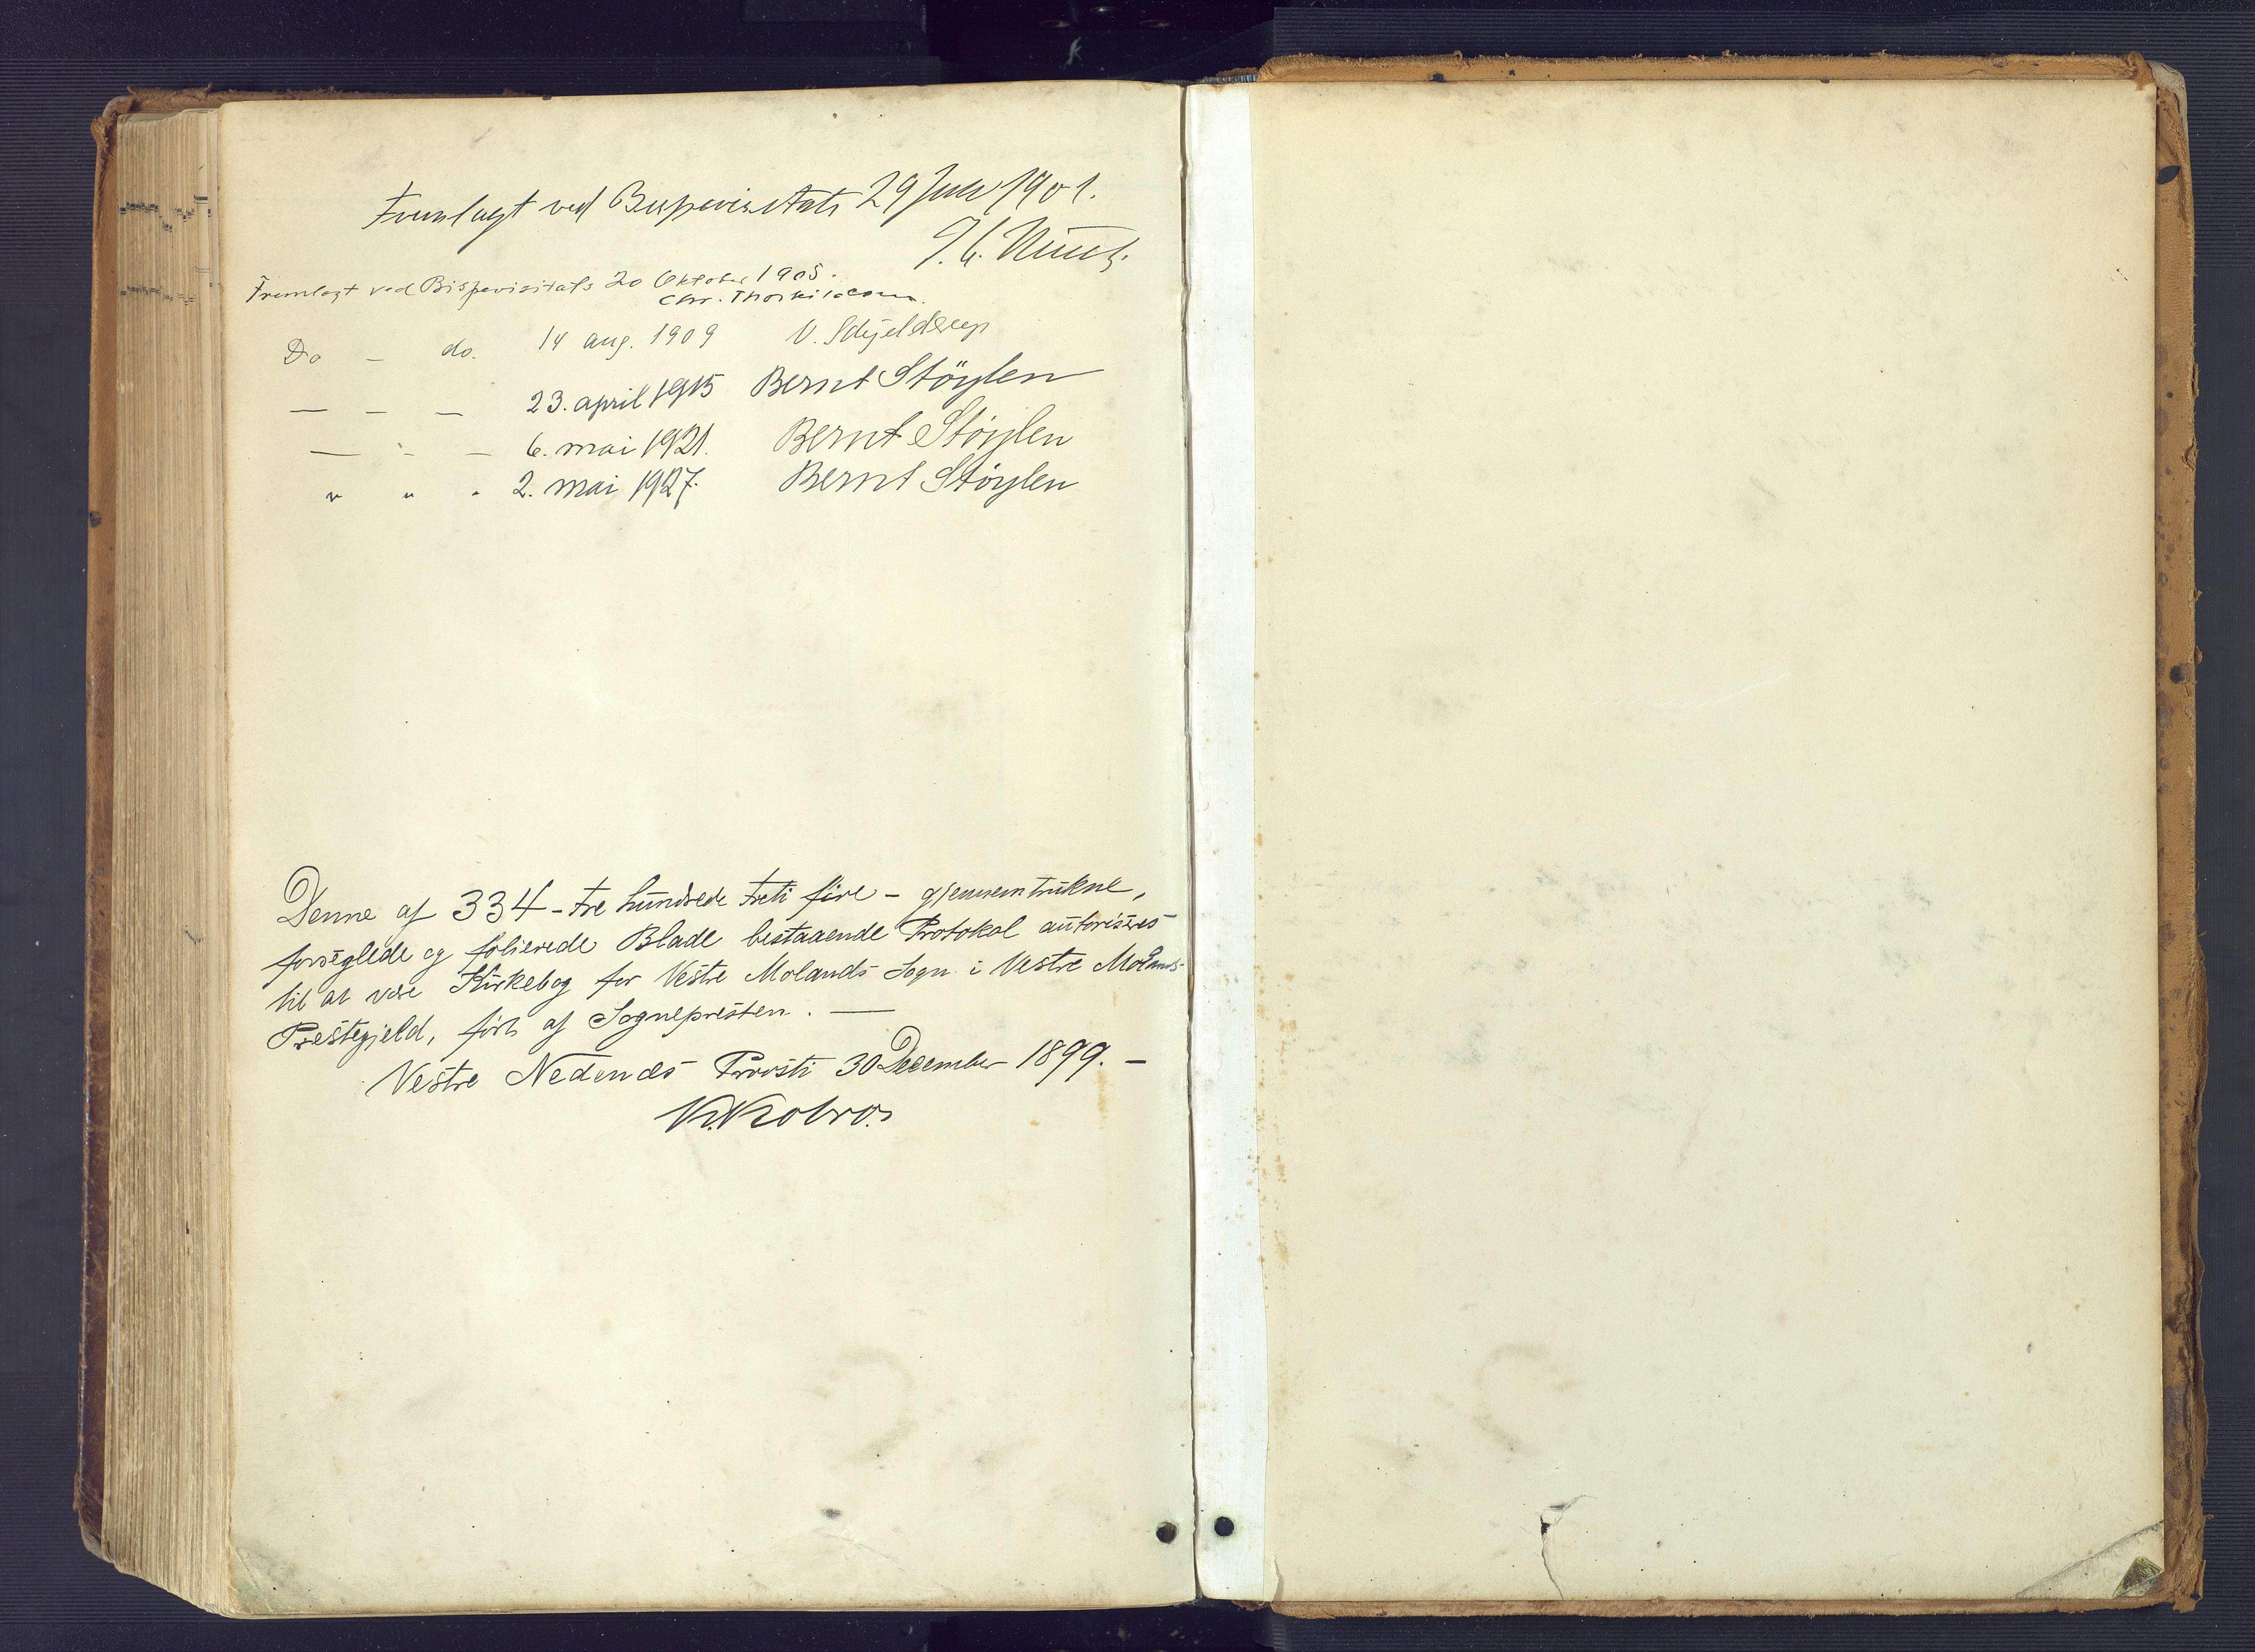 Fremlagt ved Bispevisitats 29 Juli 1901.
J. C. Heuch.
Fremlagt ved Bispevisitats 20 Oktober 1905.
Chr. Thorkildsen.
Do — do. 14 aug. 1909 V. Schjelderup
— — — 23. april 1915 Bernt Stöylen
— - — 6. mai 1921. Bernt Stöylen
" " " 2. mai 1927. Bernt Stöylen
Denne af 334 - tre hundrede treti fire - gjennemtrukne,
forseglede og folierede Blade bestaaende Protokol autoriseres
til at være Kirkebog for Vestre Molands Sogn i Vestre Molands
Præstegjeld, ført af Sognepræsten. —
Vestre Nedenæs Provsti 30 December 1899. —